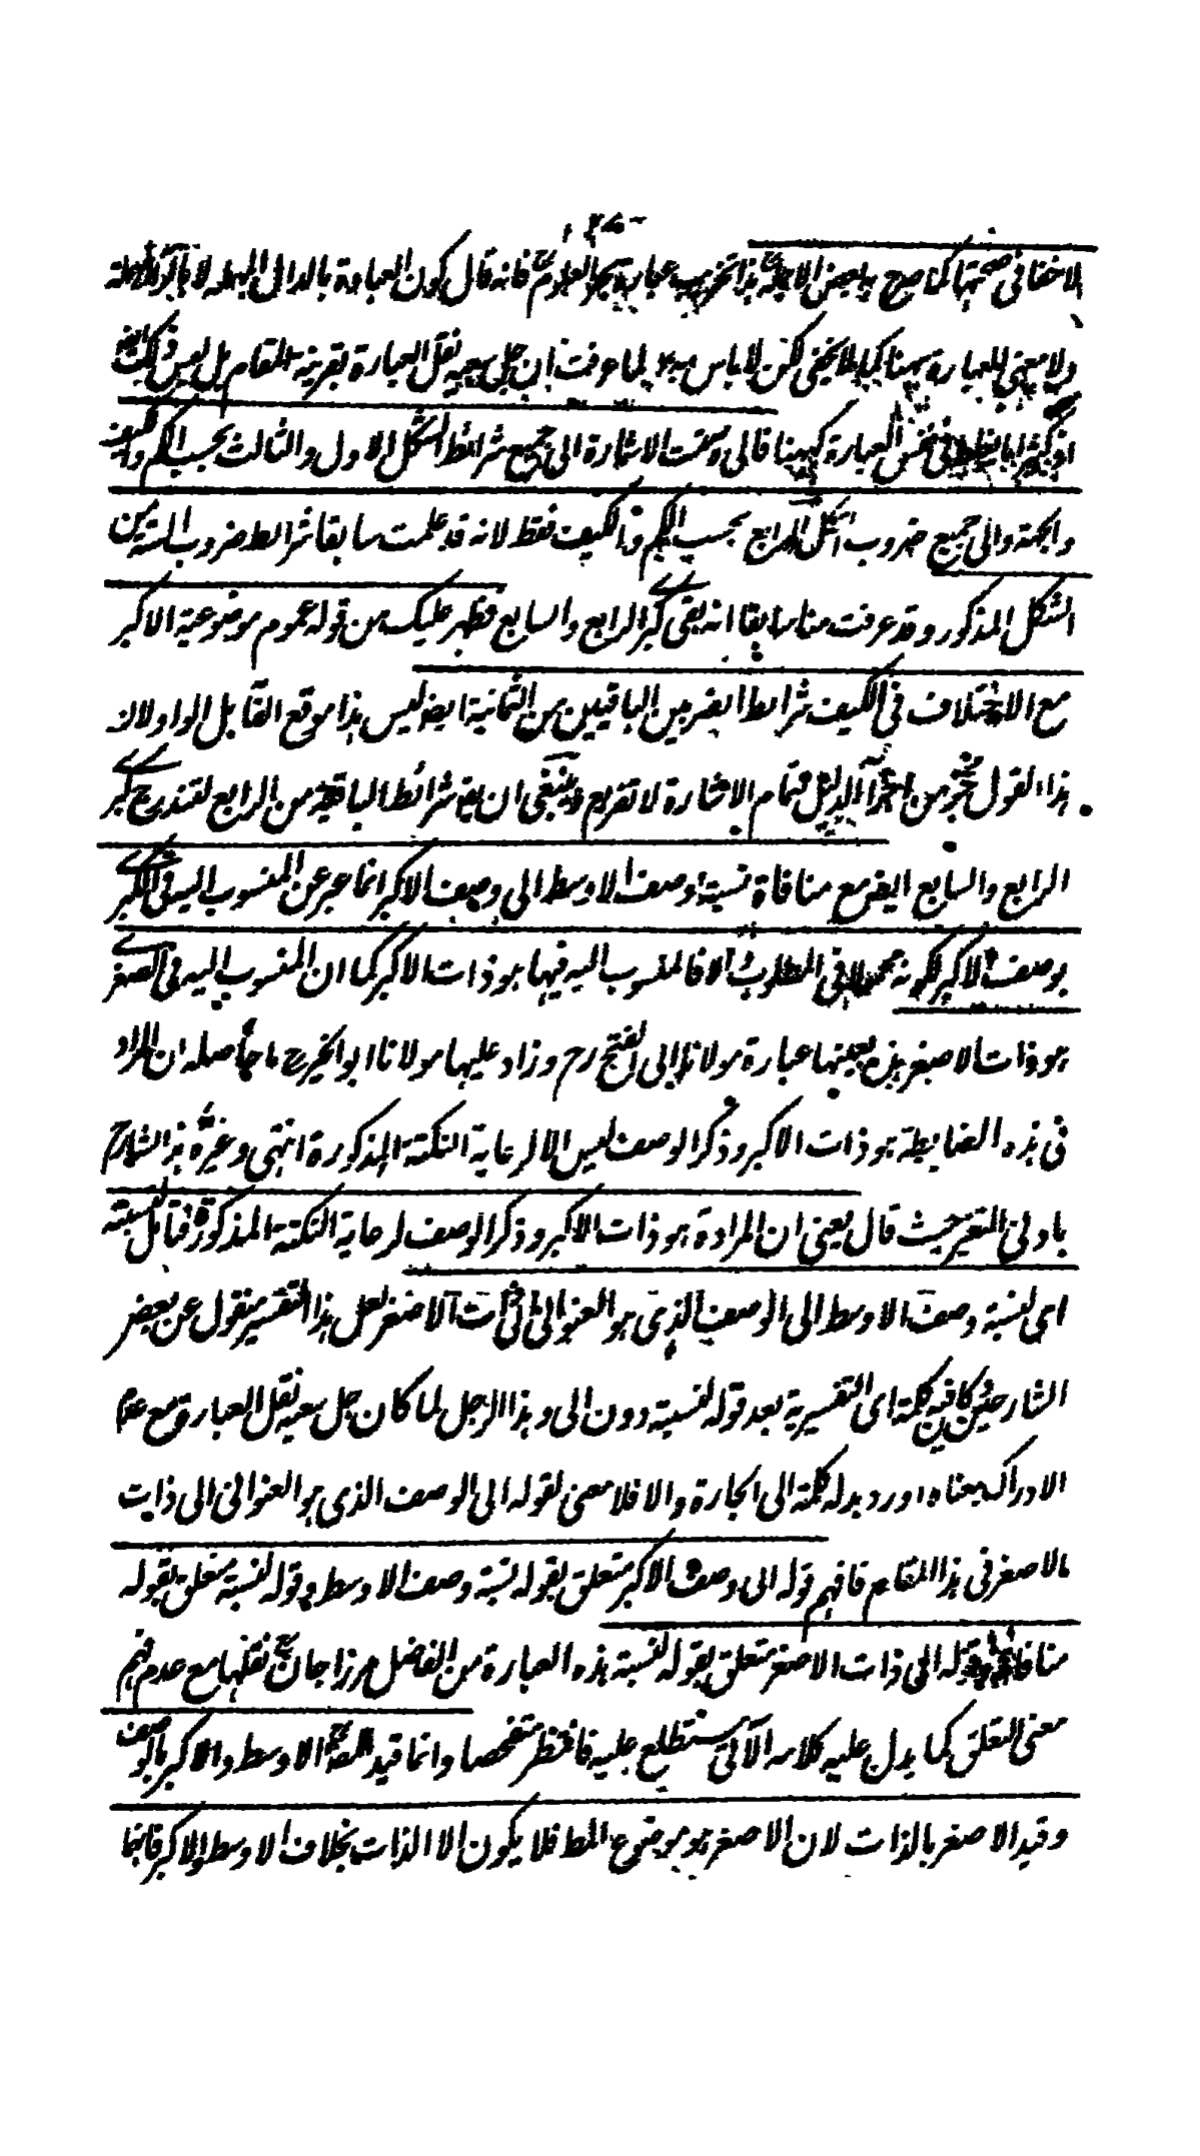 لا خفا فی صحتها کما صرح به بعض الاجلة هذا تحریر عبارة بحر العلوم فانه قال کون العبادة بالدال المهملة لا بالراء المهملة
ولا معنی للعبارة ههنا کما لا یخفی لکن لا باس به لما عرفت ان جل سعیه نقل العبارة بقرینة المقام بل لیس ذلک
العبارة کهینا قالی وسمت الاشارة الی جمیع شرائط الشکل الاول والثالث بحسب الکم والکیف
والجهة والی جمیع ضروب الشکل الرابع بحسب الکم والکیف فقط لانه قد علمت سابقا شرائط ضروب الستة من
الشکل المذکور وقد عرفت منا سابقا انه بقی کبری الرابع والسابع فظهر علیک من قوله عموم موضوعیة الاکبر
مع الاختلاف فی الکیف شرائط الضربین الباقیین من الثمانیة ایضا لیس هذا موقع القابل الواو لان
هذا القول مخبر من اجزاء الدلیل فتمام الاشارة لا تفریع وینبغی ان یقع شرائط الباقیة من الرابع لتندرج کبری
الرابع والسابع ایضا مع منافاة نسبة وصف الاوسط الی وصف الاکبر انما عبر عن المنسوب الیه فی الکبری
بوصف الاکبر لکونه محمولا فی المطلوب والا فالمنسوب الیه فیها هو ذات الاکبر کما ان المنسوب الیه فی الصغری
هو ذات الاصغر هذه بعینها عبارة مولانا ابی الفتح رح وزاد علیها مولانا ابو الخیر رح ما حاصله ان المراد
فی هذه الضابطة هو ذات الاکبر وذکر الوصف لیس الا لرعایة النکتة المذکورة انتهی وغیره هذ الشارح
بادنی التغیر حیث قال یعنی ان المرادة هو ذات الاکبر وذکر الوصف لرعایة النکتة المذکورة فتامل لنسبته
ای لنسبة وصف الاوسط الی الوصف الذی هو العنوانی الی ذات الاصغر لعل هذا التفسیر منقول عن بعض
الشارحین کافیه کلمة ای التفسیریة بعد قوله لنسبته دون الی وهذا الرجل لما کان جل سعیه نقل العبارة مع عدم
الادراک بمعناه اورد بدله کلمة الی الجارة والا فلا معنی لقوله الی الوصف الذی هو العنوانی الی ذات
الاصغر فی هذا المقام فافهم قوله الی وصف الاکبر متعلق بقوله نسبة وصف الاوسط وقوله لنسبة متعلق بقوله
منافاة وقوله الی ذات الاصغر متعلق بقوله لنسبة هذه العبارة من الفاضل مرزا جان رح نقلها مع عدم فهم
معنی المتعلق کما یدل علیه کلامه الآتی ستطلع علیه فانتظر متفحصا وانما قید المصنف الاوسط والاکبر بالوصف
وقید الاصغر بالذات لان الاصغر هو موضوع المط فلا یکون الا الذات بخلاف الاوسط والاکبر فانهما